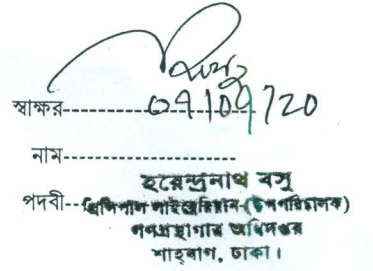 স্বাক্ষর-----------------
নাম-----------------
হরেন্দ্রনাথ বসু
পদবী--প্রিন্সিপাল লাইব্রেরিয়ান (উপপরিচালক)
গণগ্রন্থাগার অধিদপ্তর
শাহ্‌বাগ, ঢাকা।